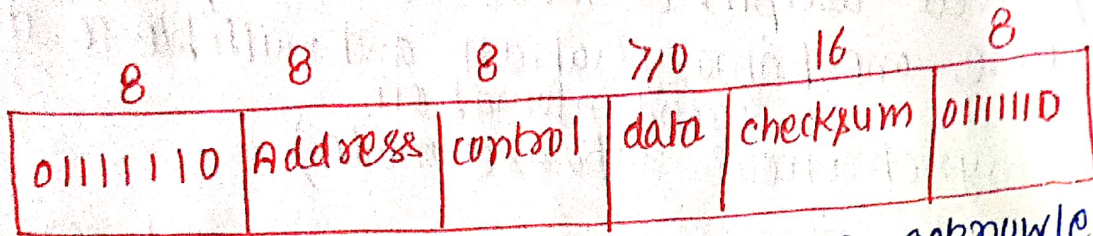 8 8 8 ≥0 16 8
01111110 Address control data checksum 01111110